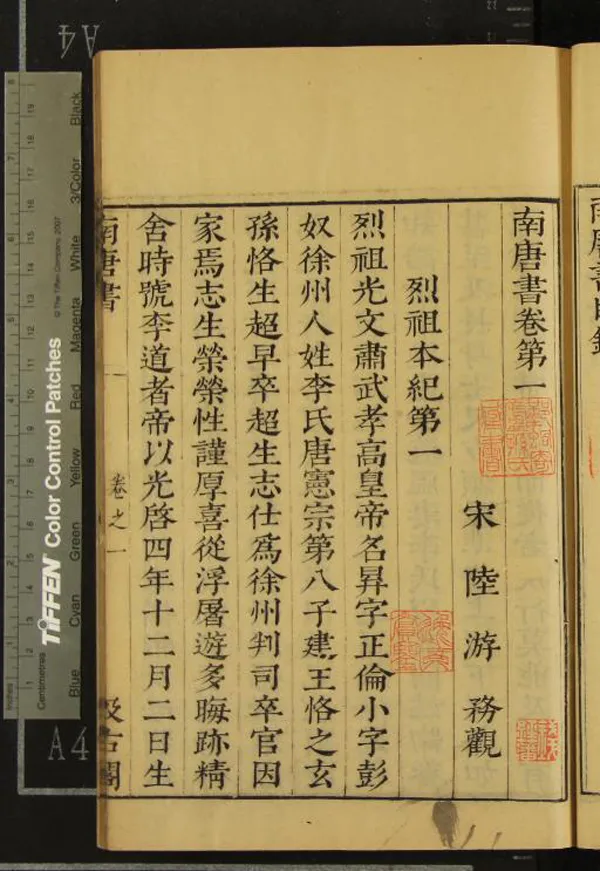 南唐書卷第一
宋陸游務觀
烈祖本紀第一
烈祖光文肅武孝高皇帝名昪字正倫小字彭
奴徐州人姓李氏唐憲宗第八子建王恪之玄
孫恪生超早卒超生志仕爲徐州判司卒官因
家焉志生榮榮性謹厚喜從浮屠遊多晦跡精
舍時號李道者帝以光啓四年十二月二日生
南唐書 卷之一 一 汲古閣
南唐書目錄
A4
A4
TIFFEN Color Control Patches
© The Tiffen Company, 2007
Blue Cyan Green Yellow Red Magenta White 3/Color Black
Inches 1 2 3 4 5 6 7 8
Centimetres 1 2 3 4 5 6 7 8 9 10 11 12 13 14 15 16 17 18 19